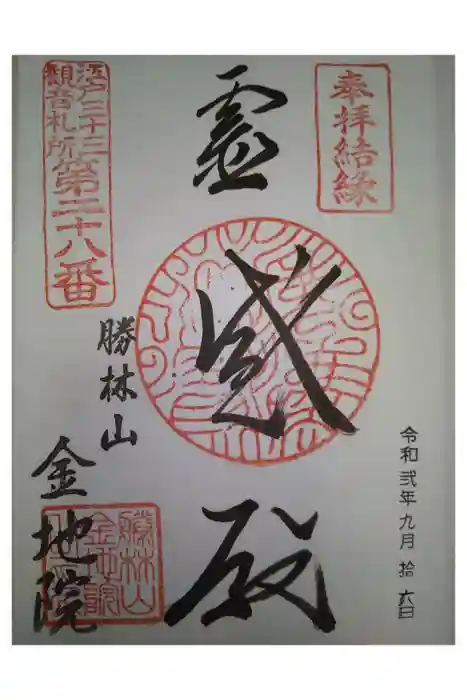 奉拝結縁
令和弐年九月拾六日
霊感殿
江戸三十三
観音札所第二十八番
勝林山
金地院
勝林山
金地院